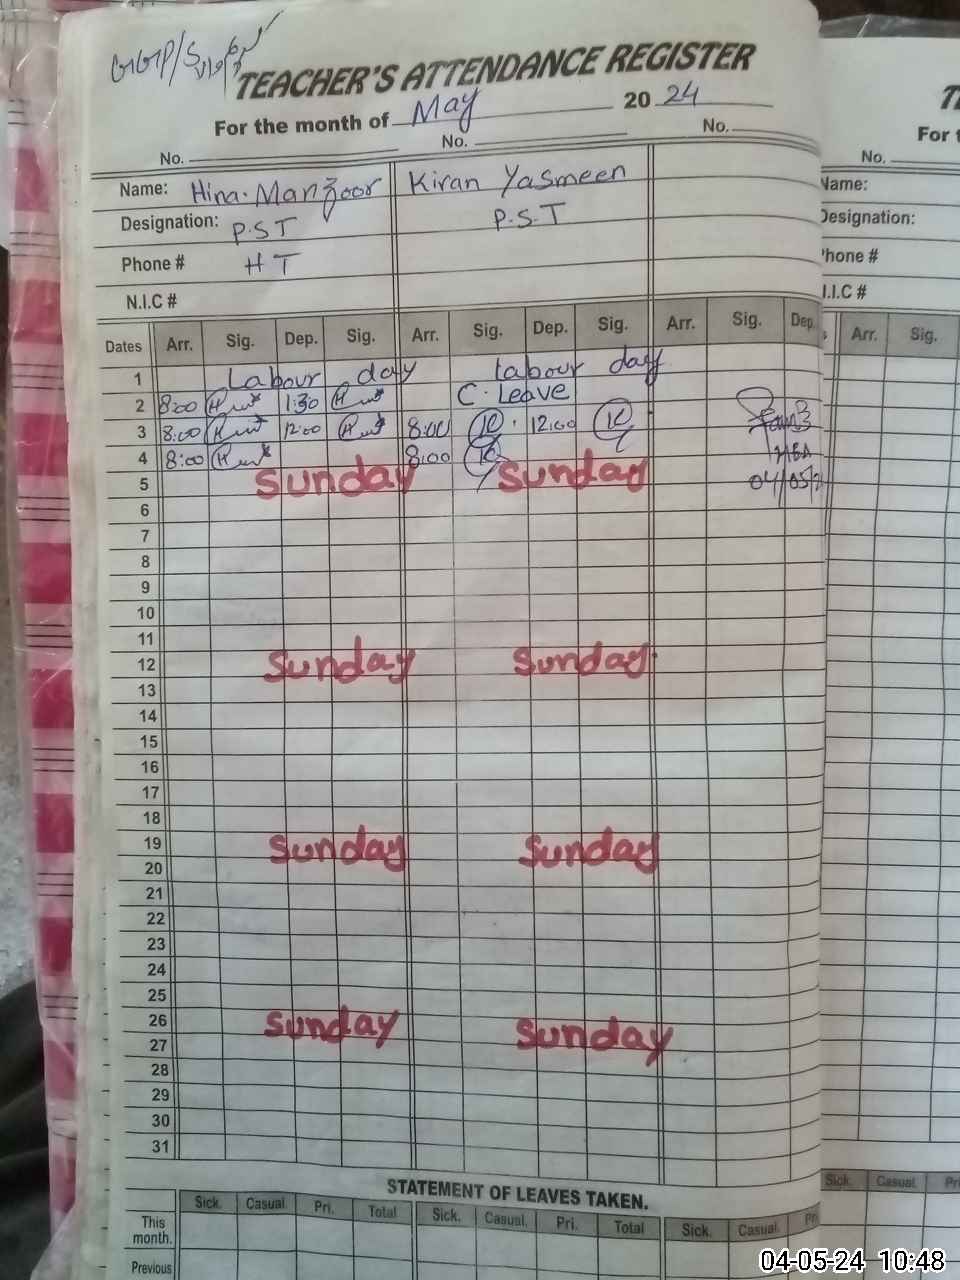 GGP/S
TEACHER'S ATTENDANCE REGISTER
For the month of May 2024
No. No. No.
Name: Hina Manzoor Kiran Yasmeen
Designation: P.S.T P.S.T
Phone # H T
N.I.C #
Dates Arr. Sig. Dep. Sig. Arr. Sig. Dep. Sig. Arr. Sig. Dep.
1 Labour day Labour day
2 8:00 1:30 C. Leave
3 8:00 12:00 8:00 12:00
4 8:00 8:00
5 Sunday Sunday 04/05/2
6
7
8
9
10
11
12 Sunday Sunday
13
14
15
16
17
18
19 Sunday Sunday
20
21
22
23
24
25
26 Sunday Sunday
27
28
29
30
31
STATEMENT OF LEAVES TAKEN.
Sick. Casual. Pri. Total Sick. Casual. Pri. Total Sick. Casual. Pri
This
month.
Previous
For t
No.
Name:
Designation:
Phone #
N.I.C #
Arr. Sig.
Sick. Casual. Pri
04-05-24 10:48